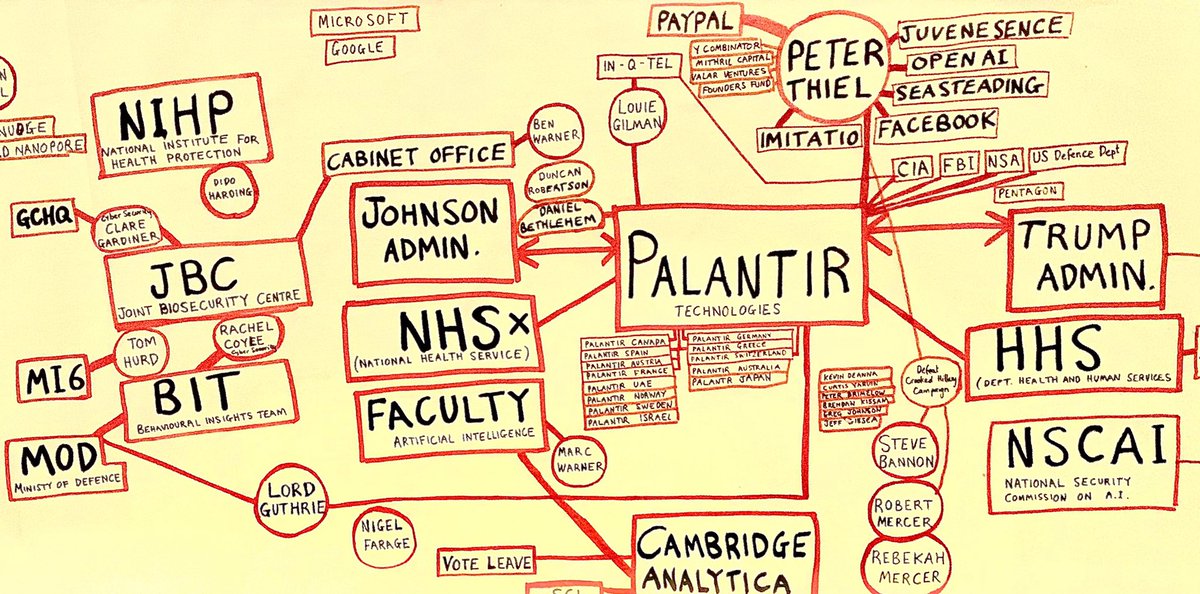 MICROSOFT
GOOGLE
NUDGE
D NANOPORE
NIHP
NATIONAL INSTITUTE FOR
HEALTH PROTECTION
DIDO
HARDING
CABINET OFFICE
BEN
WARNER
DUNCAN
ROBERTSON
DANIEL
BETHLEHEM
JOHNSON
ADMIN.
GCHQ
Cyber Security
CLARE
GARDINER
JBC
JOINT BIOSECURITY CENTRE
TOM
HURD
RACHEL
COYLE
Cyber Security
MI6
BIT
BEHAVIOURAL INSIGHTS TEAM
MOD
MINISTY OF DEFENCE
LORD
GUTHRIE
NIGEL
FARAGE
NHSx
(NATIONAL HEALTH SERVICE)
FACULTY
ARTIFICIAL INTELLIGENCE
MARC
WARNER
VOTE LEAVE
CAMBRIDGE
ANALYTICA
IN-Q-TEL
LOUIE
GILMAN
PALANTIR
TECHNOLOGIES
PALANTIR CANADA
PALANTIR SPAIN
PALANTIR AUSTRIA
PALANTIR FRANCE
PALANTIR UAE
PALANTIR NORWAY
PALANTIR SWEDEN
PALANTIR ISRAEL
PALANTIR GERMANY
PALANTIR GREECE
PALANTIR SWITZERLAND
PALANTIR AUSTRALIA
PALANTR JAPAN
PAYPAL
Y COMBINATOR
MITHRIL CAPITAL
VALAR VENTURES
FOUNDERS FUND
PETER
THIEL
IMITATIO
JUVENESENCE
OPEN AI
SEASTEADING
FACEBOOK
CIA
FBI
NSA
US Defence Dept
PENTAGON
TRUMP
ADMIN.
HHS
(DEPT. HEALTH AND HUMAN SERVICES
NSCAI
NATIONAL SECURITY
COMMISSION ON A.I.
Defeat
Crooked Hillary
Campaign
KEVIN DEANNA
CURTIS YARVIN
PETER BRIMELOW
BRENDAN KISSAM
GREG JOHNSON
JEFF GIESEA
STEVE
BANNON
ROBERT
MERCER
REBEKAH
MERCER